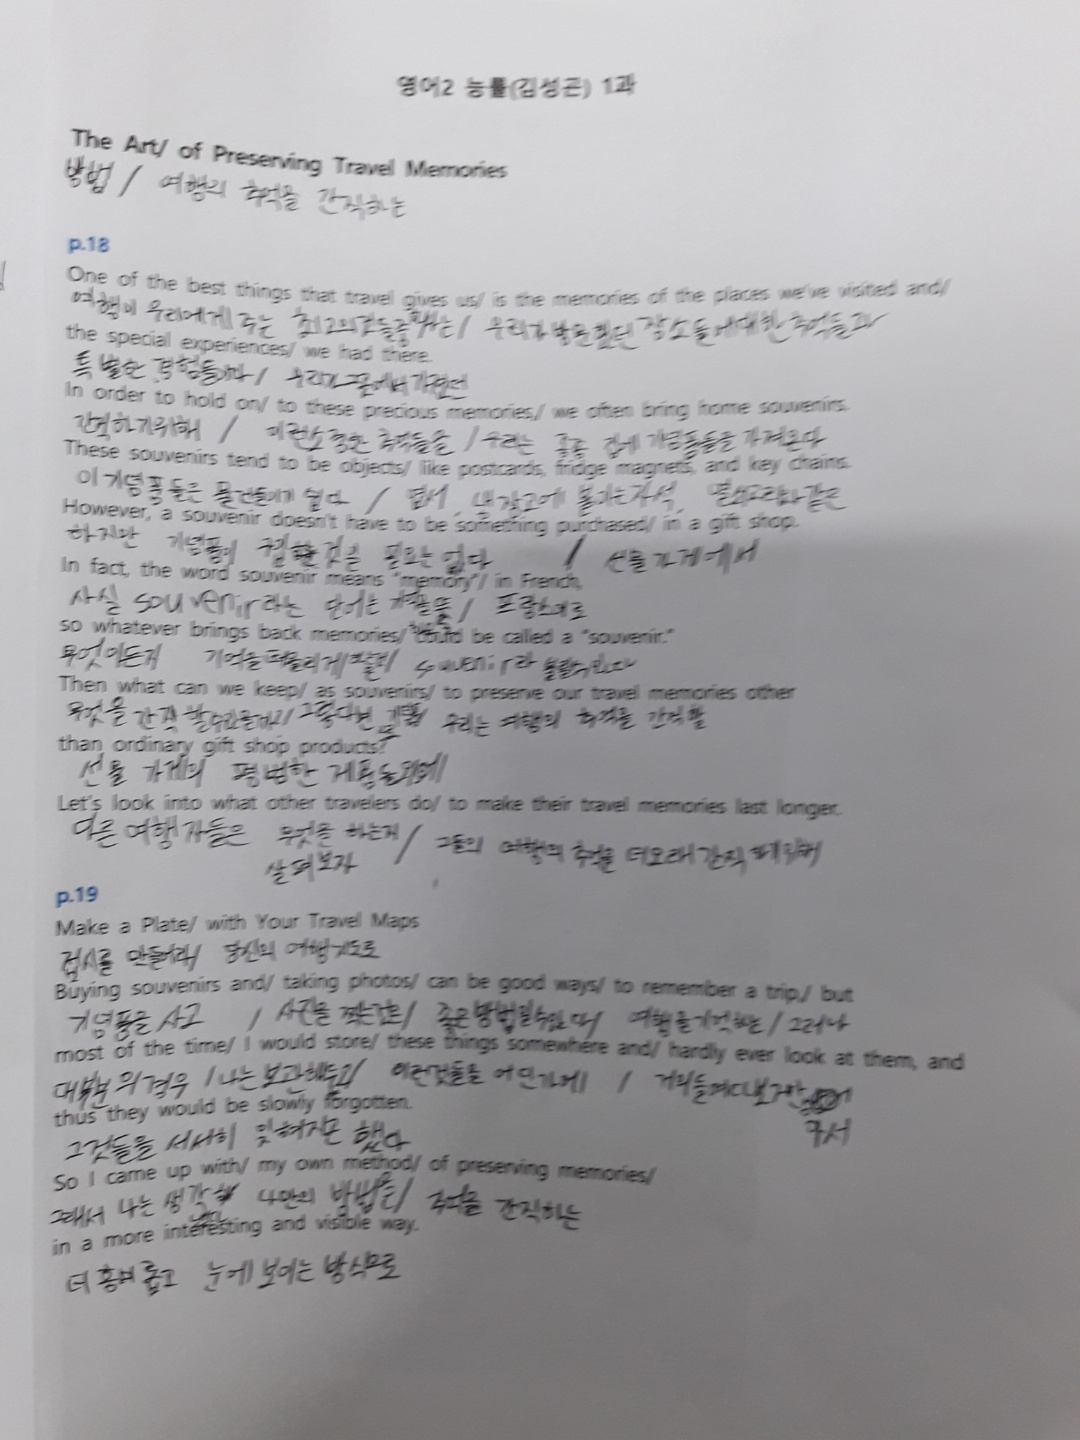 영어2 능률(김성곤) 1과
The Art/ of Preserving Travel Memories
방법 / 여행의 추억을 간직하는
p.18
One of the best things that travel gives us/ is the memories of the places we've visited and/
여행이 우리에게 주는 최고의것들중 하나는/ 우리가 방문했던 장소들에대한 추억들과
the special experiences/ we had there.
특별한 경험들이다/ 우리가 그곳에서 가졌던
In order to hold on/ to these precious memories,/ we often bring home souvenirs.
간직하기위해 / 이런소중한 추억들을 /우리는 종종 집에 기념품들을 가져온다
These souvenirs tend to be objects/ like postcards, fridge magnets, and key chains.
이 기념품들은 물건들이기 쉽다 / 엽서, 냉장고에 붙이는자석, 열쇠고리와 같은
However, a souvenir doesn't have to be something purchased/ in a gift shop.
하지만 기념품이 구입한 것을 필요는 없다 / 선물가게에서
In fact, the word souvenir means "memory"/ in French,
사실 souvenir라는 단어는 / 프랑스어로
so whatever brings back memories/ could be called a "souvenir."
무엇이든지 기억을떠올리게 souvenir라 불릴수있다
Then what can we keep/ as souvenirs/ to preserve our travel memories other
무엇을 간직 할수있을까/ 그렇다면 우리는 여행의 추억을 간직할
than ordinary gift shop products?
선물 가게의 평범한
Let's look into what other travelers do/ to make their travel memories last longer.
다른 여행자들은 무엇을 하는지 / 그들의 여행의 추억을 더오래간직 하기위해
살펴보자
p.19
Make a Plate/ with Your Travel Maps
접시를 만들어라/ 당신의 여행지도로
Buying souvenirs and/ taking photos/ can be good ways/ to remember a trip,/ but
기념품을 사고 / 사진을 찍는것은/ 좋은방법일수있다/ 여행을기억하는/ 그러나
most of the time/ I would store/ these things somewhere and/ hardly ever look at them, and
대부분의경우 /나는 보관해두고/ 이런것들을 어딘가에/ /
thus they would be slowly forgotten.
그것들을 서서히 잊혀지곤 했다
So I came up with/ my own method/ of preserving memories/
그래서 나는 생각해 나만의 방법을/ 추억을 간직하는
in a more interesting and visible way.
더 흥미롭고 눈에 보이는 방식으로